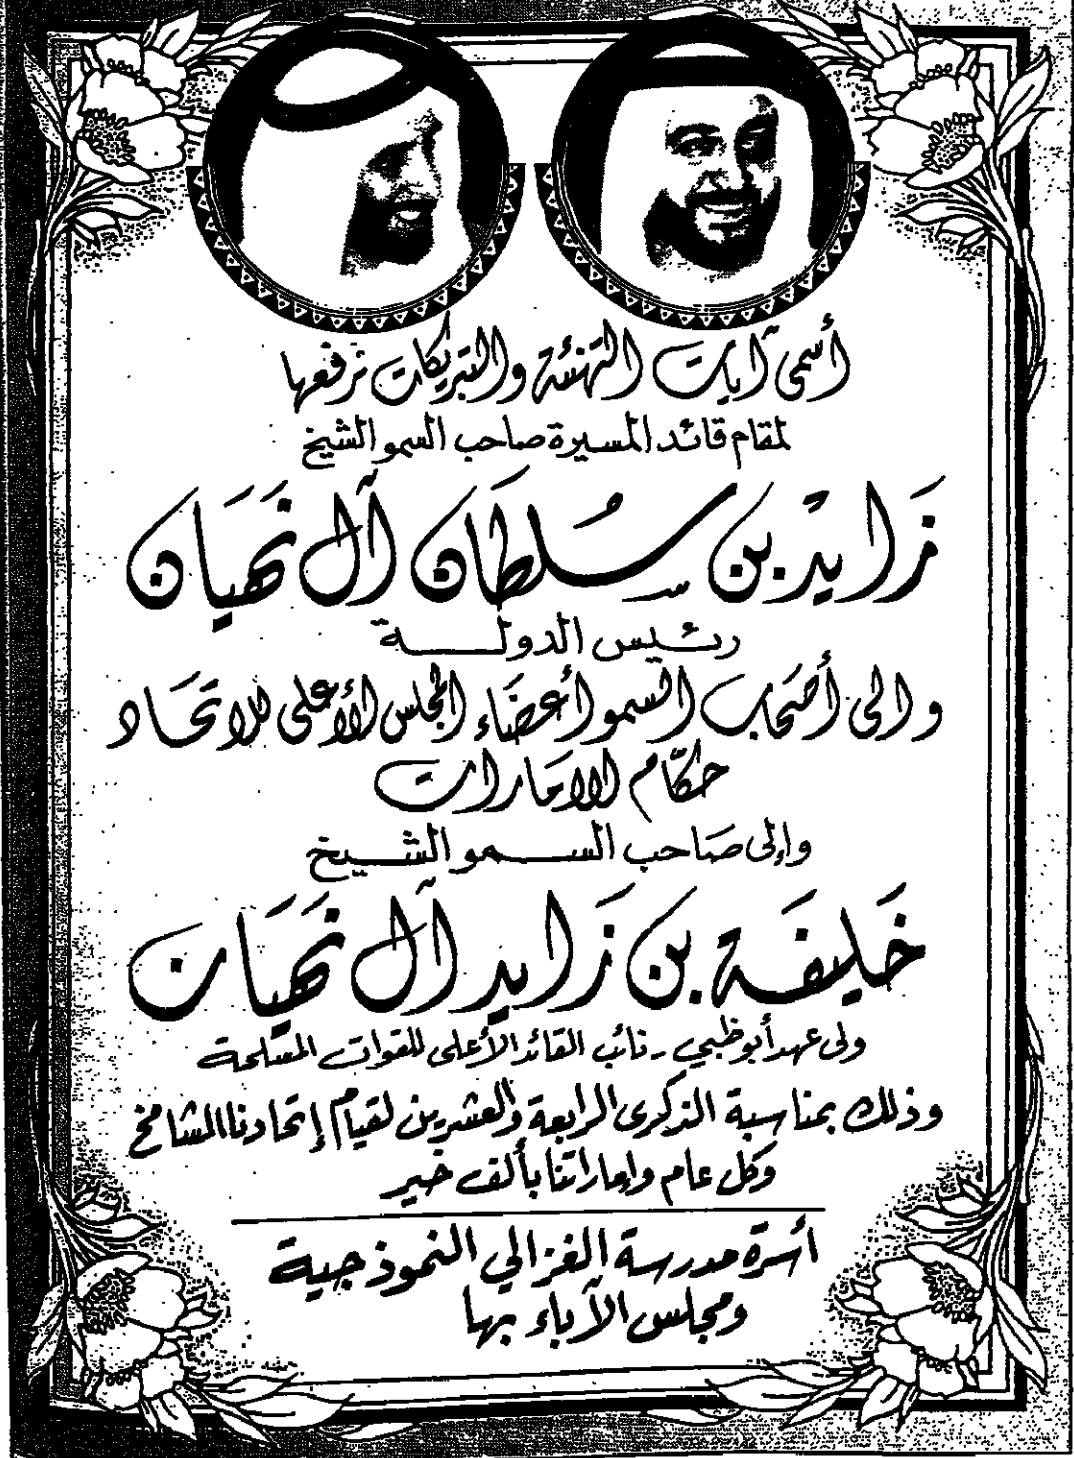 أسمى آيات التهنئة والتبريكات نرفعها
لمقام قائد المسيرة صاحب السمو الشيخ
زَايد بن سُلطَان آل نهَيَان
رئيس الدولة
والى أصحَاب السمو أعضَاء المجلس الأعلى للاتحَاد
حكّام الامَارات
وإلى صَاحب السمو الشيخ
خَليفَة بن زَايد آل نهَيَان
ولى عهد أبوظبي - نائب القائد الأعلى للقوات المسلحة
وذلك بمناسبة الذكرى الرابعة والعشرين لقيام إتحادنا الشامخ
وكل عام وإماراتنا بألف خير
أسرة مدرسة الغزالي النموذجية
ومجلس الآباء بها